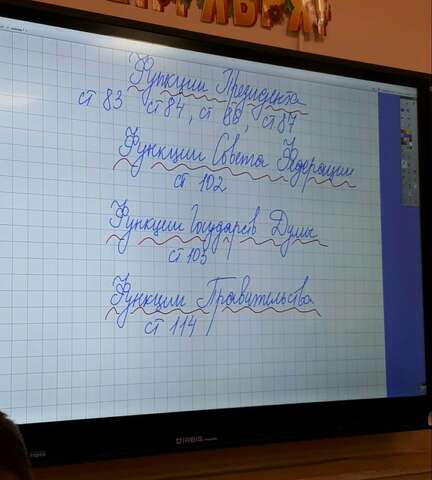 Функции Президента
ст 83 ст 84, ст 86, ст 87
Функции Совета Федерации
ст 102
Функции Государств Думы
ст 103
Функции Правительства
ст 114
IRBIS